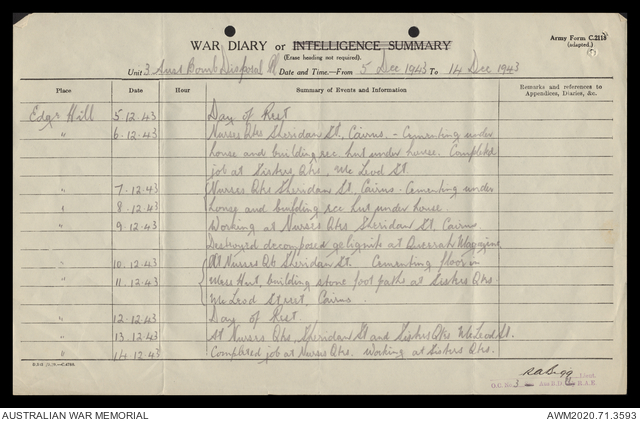 Army Form C.2118
(adapted.)
WAR DIARY or INTELLIGENCE SUMMARY
(Erase heading not required).
Unit 3 Aust Bomb Disposal Pl Date and Time.—From 5 Dec 1943 To 14 Dec 1943
Place Date Hour Summary of Events and Information Remarks and references to Appendices, Diaries, &c.
Edge Hill 5.12.43 Day of Rest
" 6.12.43 Nurses Qks Sheridan St, Cairns. - Cementing under
house and building rec hut under house. Completed
job at Sisters Qks, Mc Leod St.
" 7.12.43 Nurses Qks Sheridan St, Cairns. Cementing under
" 8.12.43 house and building rec hut under house.
" 9.12.43 Working at Nurses Qks Sheridan St. Cairns
Destroyed decomposed gelignite at Queerah Magazine
" 10.12.43 At Nurses Qks Sheridan St. Cementing floor in
" 11.12.43 Mess Hut, building stone foot paths at Sisters Qks.
McLeod Street, Cairns.
" 12.12.43 Day of Rest.
" 13.12.43 At Nurses Qks, Sheridan St and Sisters Qks McLeod St.
" 14.12.43 Completed job at Nurses Qks. Working at Sisters Qks.
Lieut.
O.C. No. 3 Aus. B.D. R.A.E.
AUSTRALIAN WAR MEMORIAL
AWM2020.71.3593